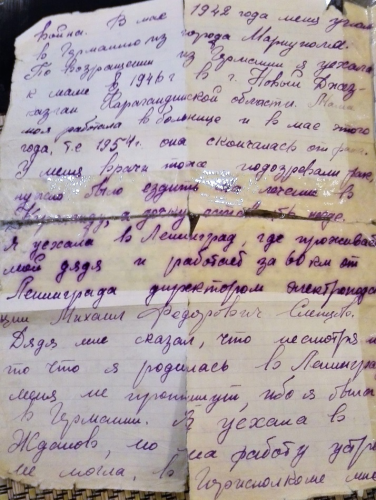 война. В мае 1942 года меня угнали
в Германию из города Мариуполя.
По возвращении из Германии я уехала
к маме в 1946 г в г. Новый Джаз-
казган Карагандинской области. Мама
моя работала в больнице и в мае этого
года, т.е 1954 г. она скончалась от рак
У меня врачи тоже подозревали рак
нужно было ездить на лечение в
дочку негде.
Я уехала в Ленинград, где проживает
мой дядя и работает за 80 км от
Ленинграда директором электростан
ции Михаил Федорович
Дядя мне сказал, что несмотря н
то что я родилась в Ленингра
меня не пропишут, ибо я была
в Германии. Я уехала в
Жданов, но на работу устро
не могла, в Горисполкоме мне